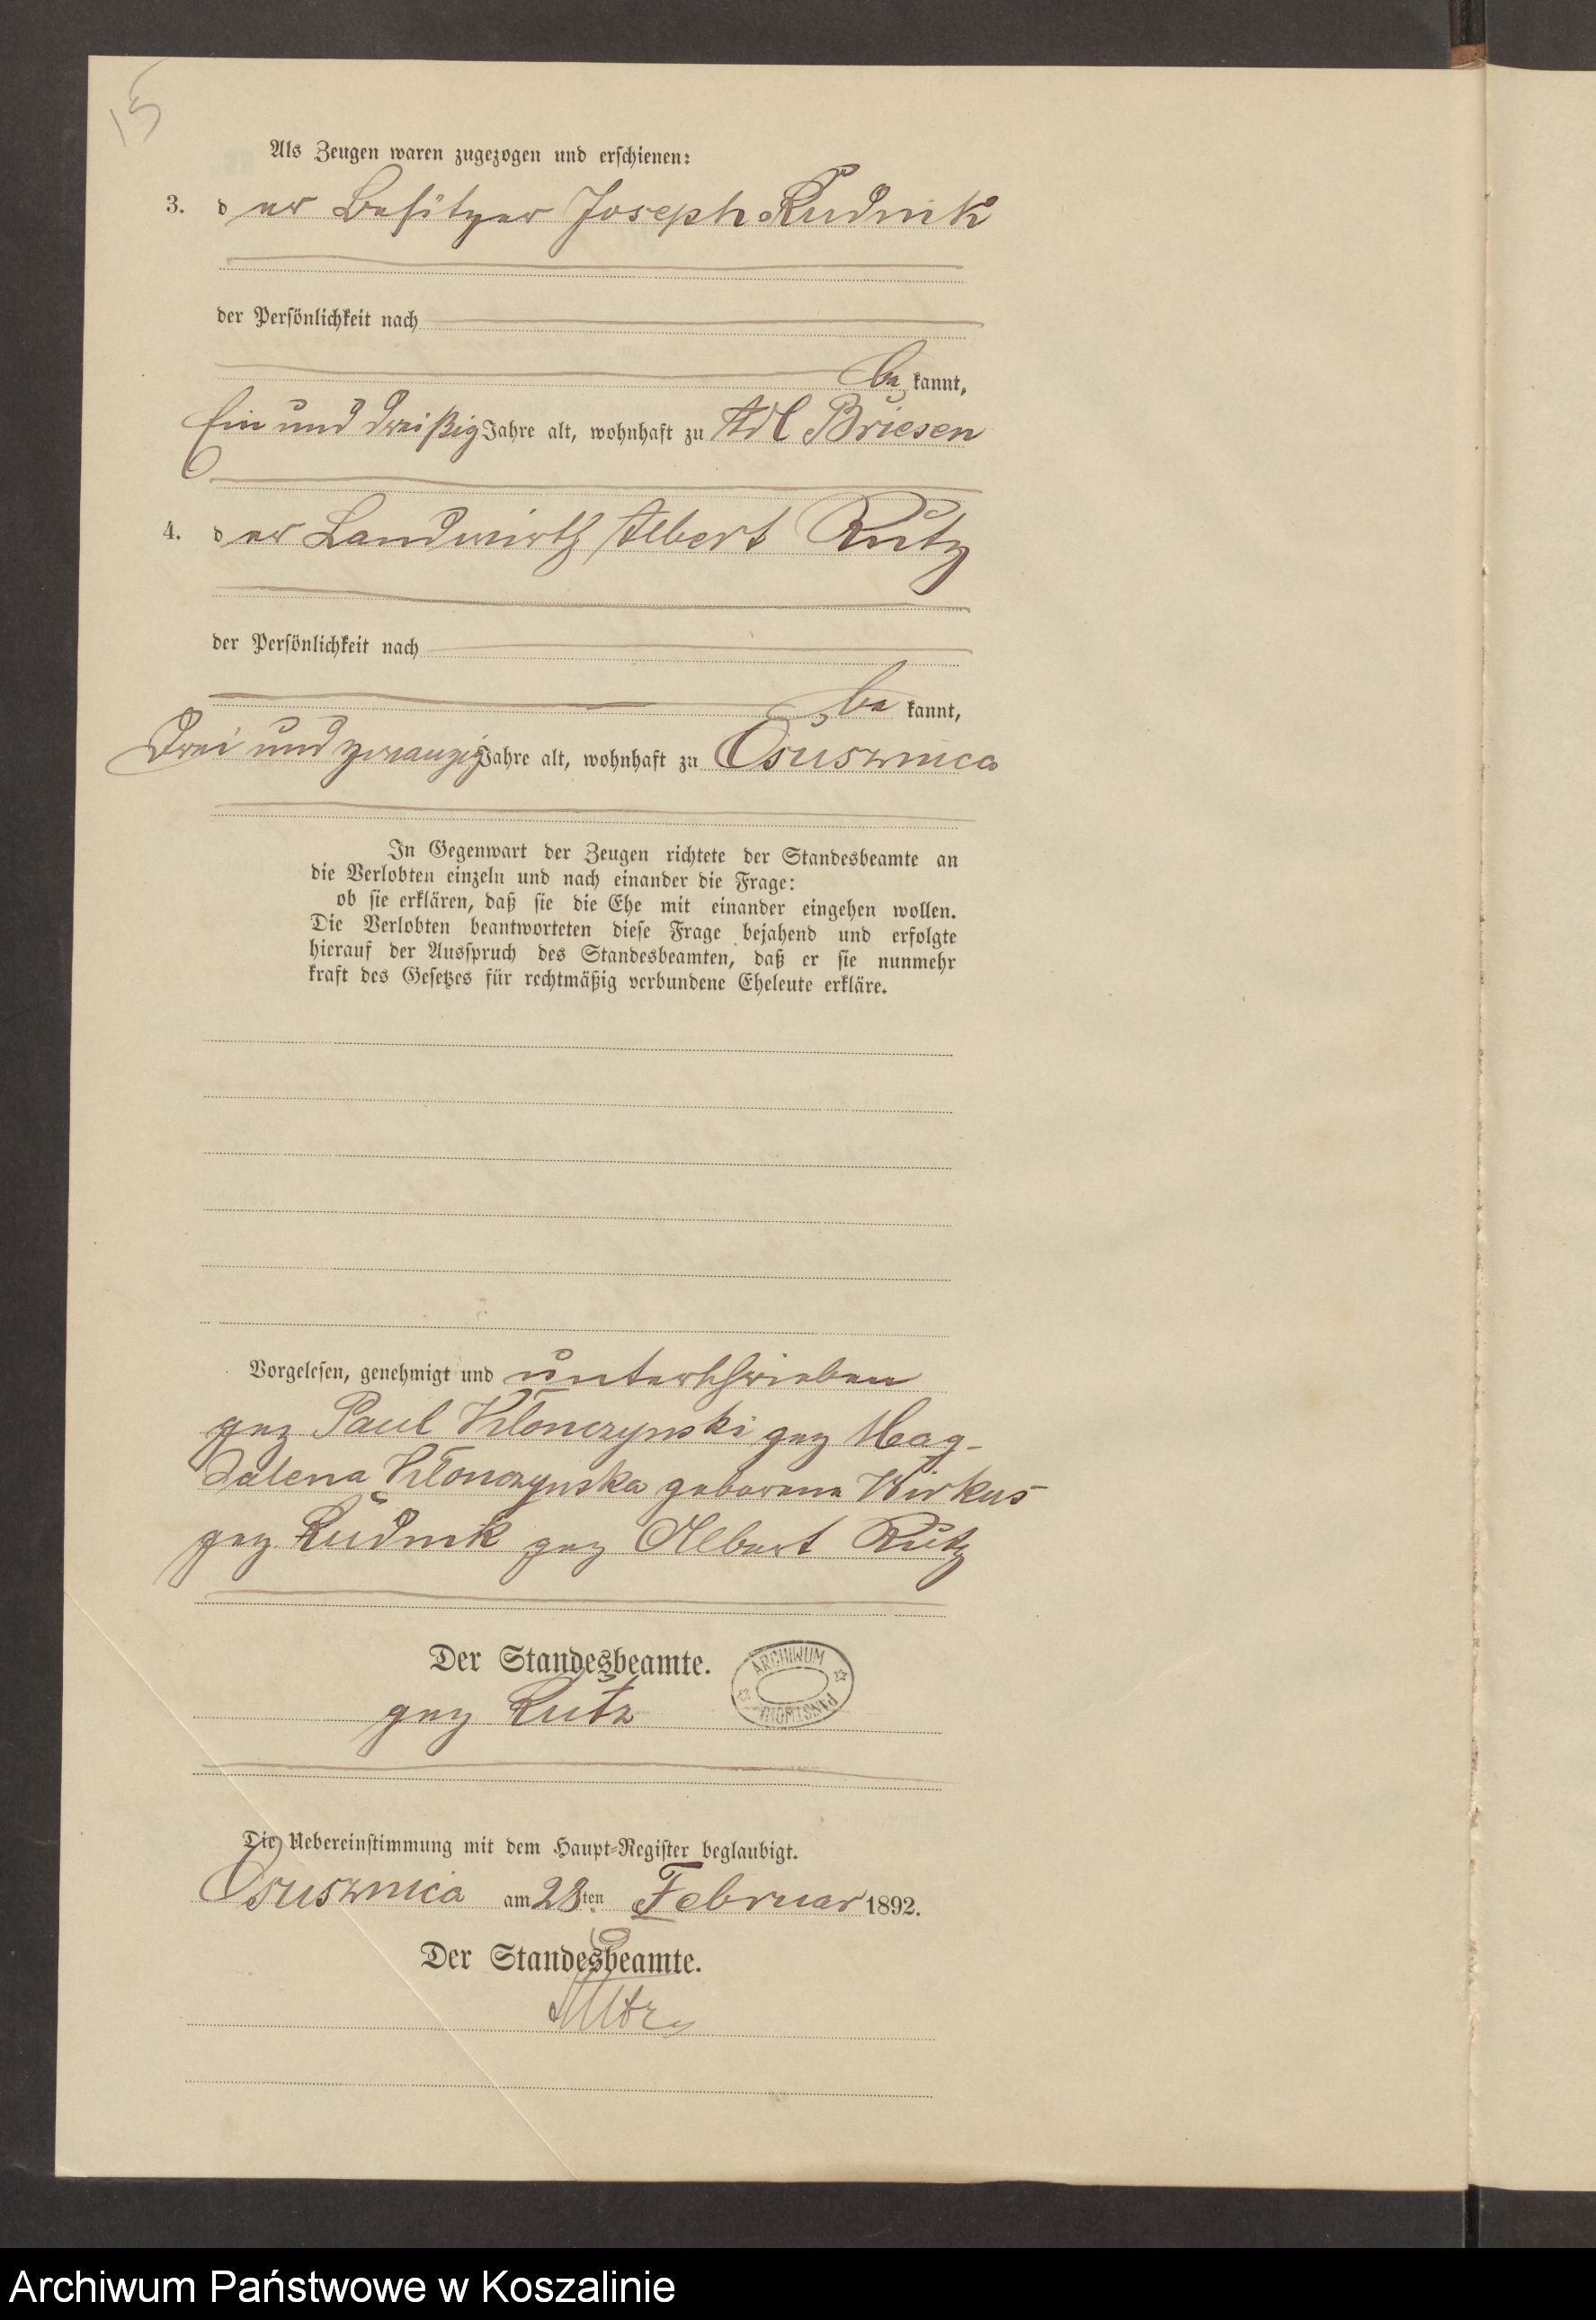 15
Als Zeugen waren zugezogen und erschienen:
3. der Besitzer Joseph Rudnik
der Persönlichkeit nach
be kannt,
Ein und dreißig Jahre alt, wohnhaft zu Adl Briesen
4. der Landwirth Albert Rutz
der Persönlichkeit nach
be kannt,
Drei und zwanzig Jahre alt, wohnhaft zu Osusznica
In Gegenwart der Zeugen richtete der Standesbeamte an
die Verlobten einzeln und nach einander die Frage:
ob sie erklären, daß sie die Ehe mit einander eingehen wollen.
Die Verlobten beantworteten diese Frage bejahend und erfolgte
hierauf der Ausspruch des Standesbeamten, daß er sie nunmehr
kraft des Gesetzes für rechtmäßig verbundene Eheleute erkläre.
Vorgelesen, genehmigt und unterschrieben
gez Paul Klonczynski gez Mag-
dalena Klonczynska geborene Wirkus
gez Rudnik gez Albert Rutz
Der Standesbeamte.
ARCHIWUM PAŃSTWOWE
gez Rutz
Die Uebereinstimmung mit dem Haupt-Register beglaubigt.
Osusznica am 28ten Februar 1892.
Der Standesbeamte.
Archiwum Państwowe w Koszalinie